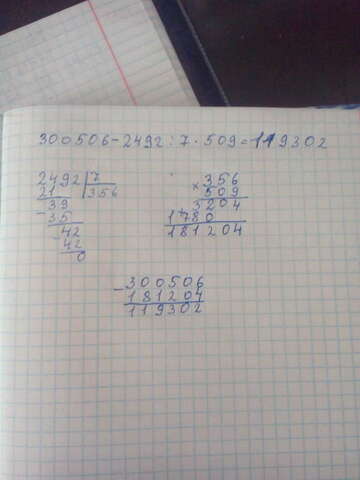 300506-2492:7·509=119302
2492 7
21 356
39
35
42
42
0
×356
509
3204
1780
181204
-300506
181204
119302